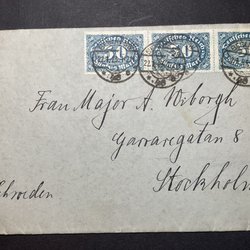 50 50
Frau Major A. Wiborgh
Garvaregatan 8
Stockholm
Schweden